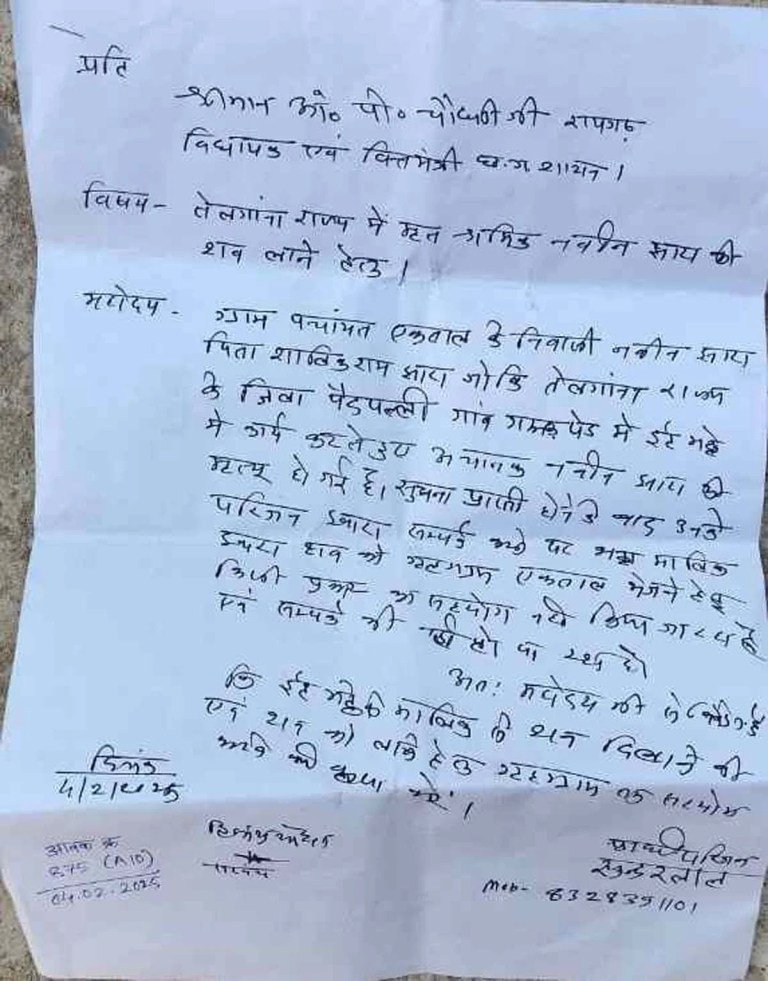 प्रति
श्रीमान ओ० पी० चौधरी जी रायगढ़
विधायक एवं वित्तमंत्री छ.ग शासन।
विषय - तेलगांना राज्य में मृत श्रमिक नवीन साय की
शव लाने हेतु।
महोदय - ग्राम पंचायत एकताल के निवासी नवीन साय
पिता शालिकराम साय जोकि तेलगांना राज्य
के जिला पेदपल्ली गांव में ईट भट्ठे
में कार्य करते हुए अचानक नवीन साय की
मृत्यू हो गई है। सुचना प्राप्ती होने के बाद उनके
परिजन द्वारा सम्पर्क करने पर मालिक
द्वारा शव को गृहग्राम एकताल भेजने हेतु
किसी प्रकार का सहयोग नही किया जा रहा है
एवं सम्पर्क भी नहीं हो पा रहा है।
अतः महोदय जी से निवेदन है
कि ईट भट्ठे के मालिक से शव दिलाने की
एवं शव को लाने हेतु गृहग्राम तक सहयोग
करने की कृपा करें।
दिनांक
4/2/2025
आवक क्र
375 (A10)
04.02.2025
प्रार्थी परिजन
सुन्दरलाल
Mob- 8328351101